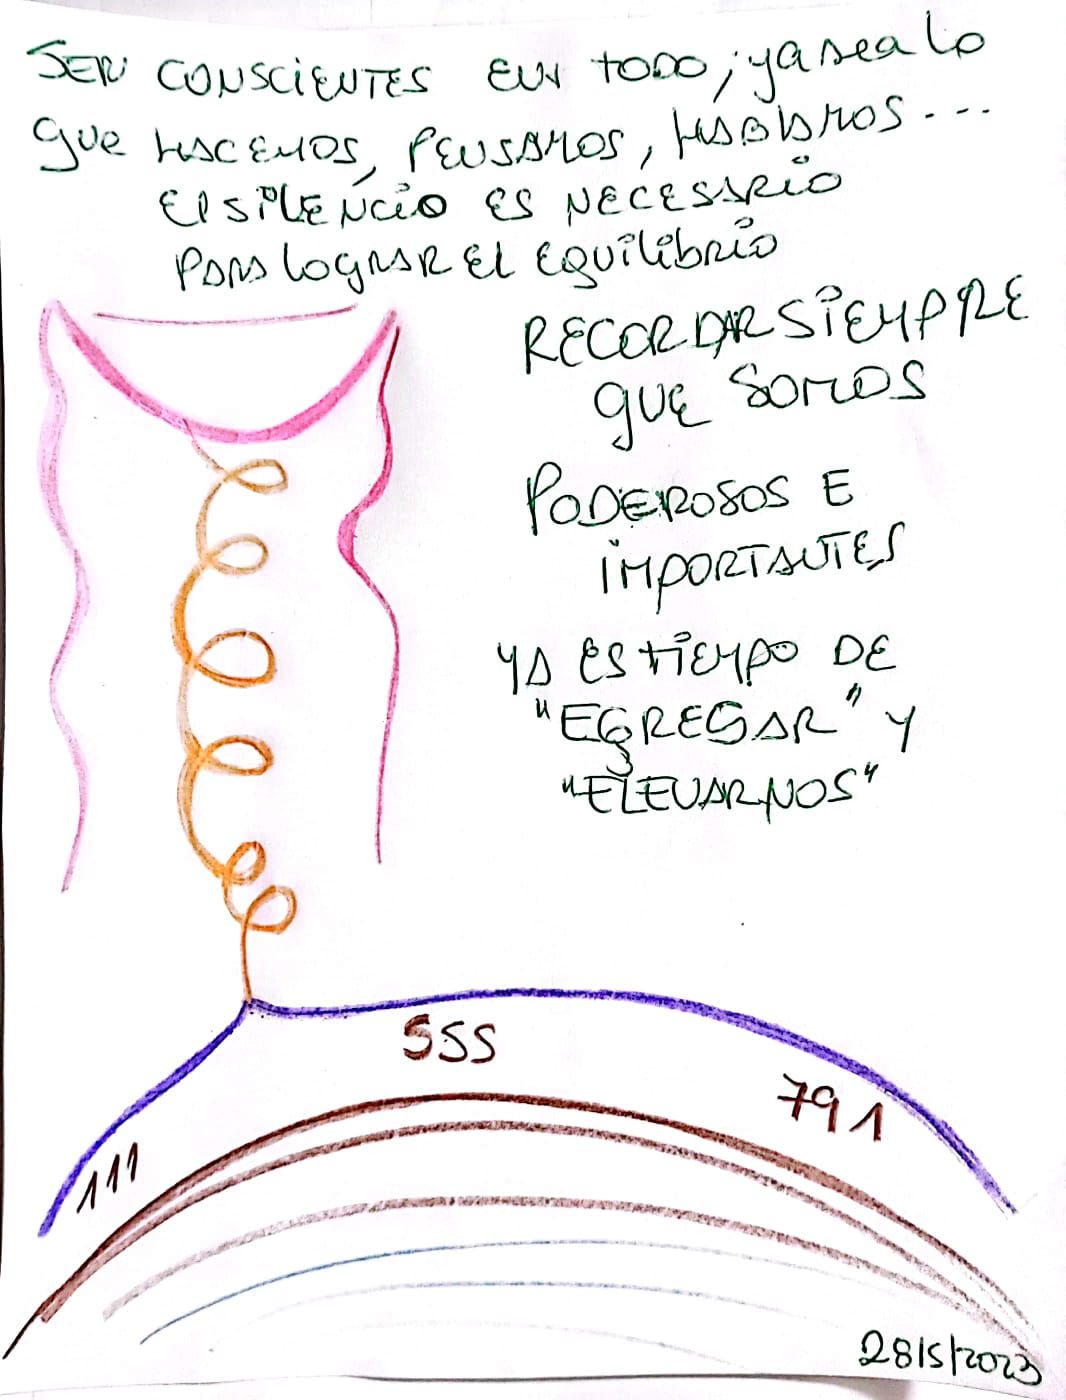 SER CONSCIENTES EN TODO; ya sea lo
que HACEMOS, PENSAMOS, HABLAMOS...
El SILENCIO ES NECESARIO
PARA LOGRAR EL EQUILIBRIO
RECORDAR SIEMPRE
QUE SOMOS
PODEROSOS E
IMPORTANTES
YA ES TIEMPO DE
"EGRESAR" Y
"ELEVARNOS"
555
791
111
28/5/2023